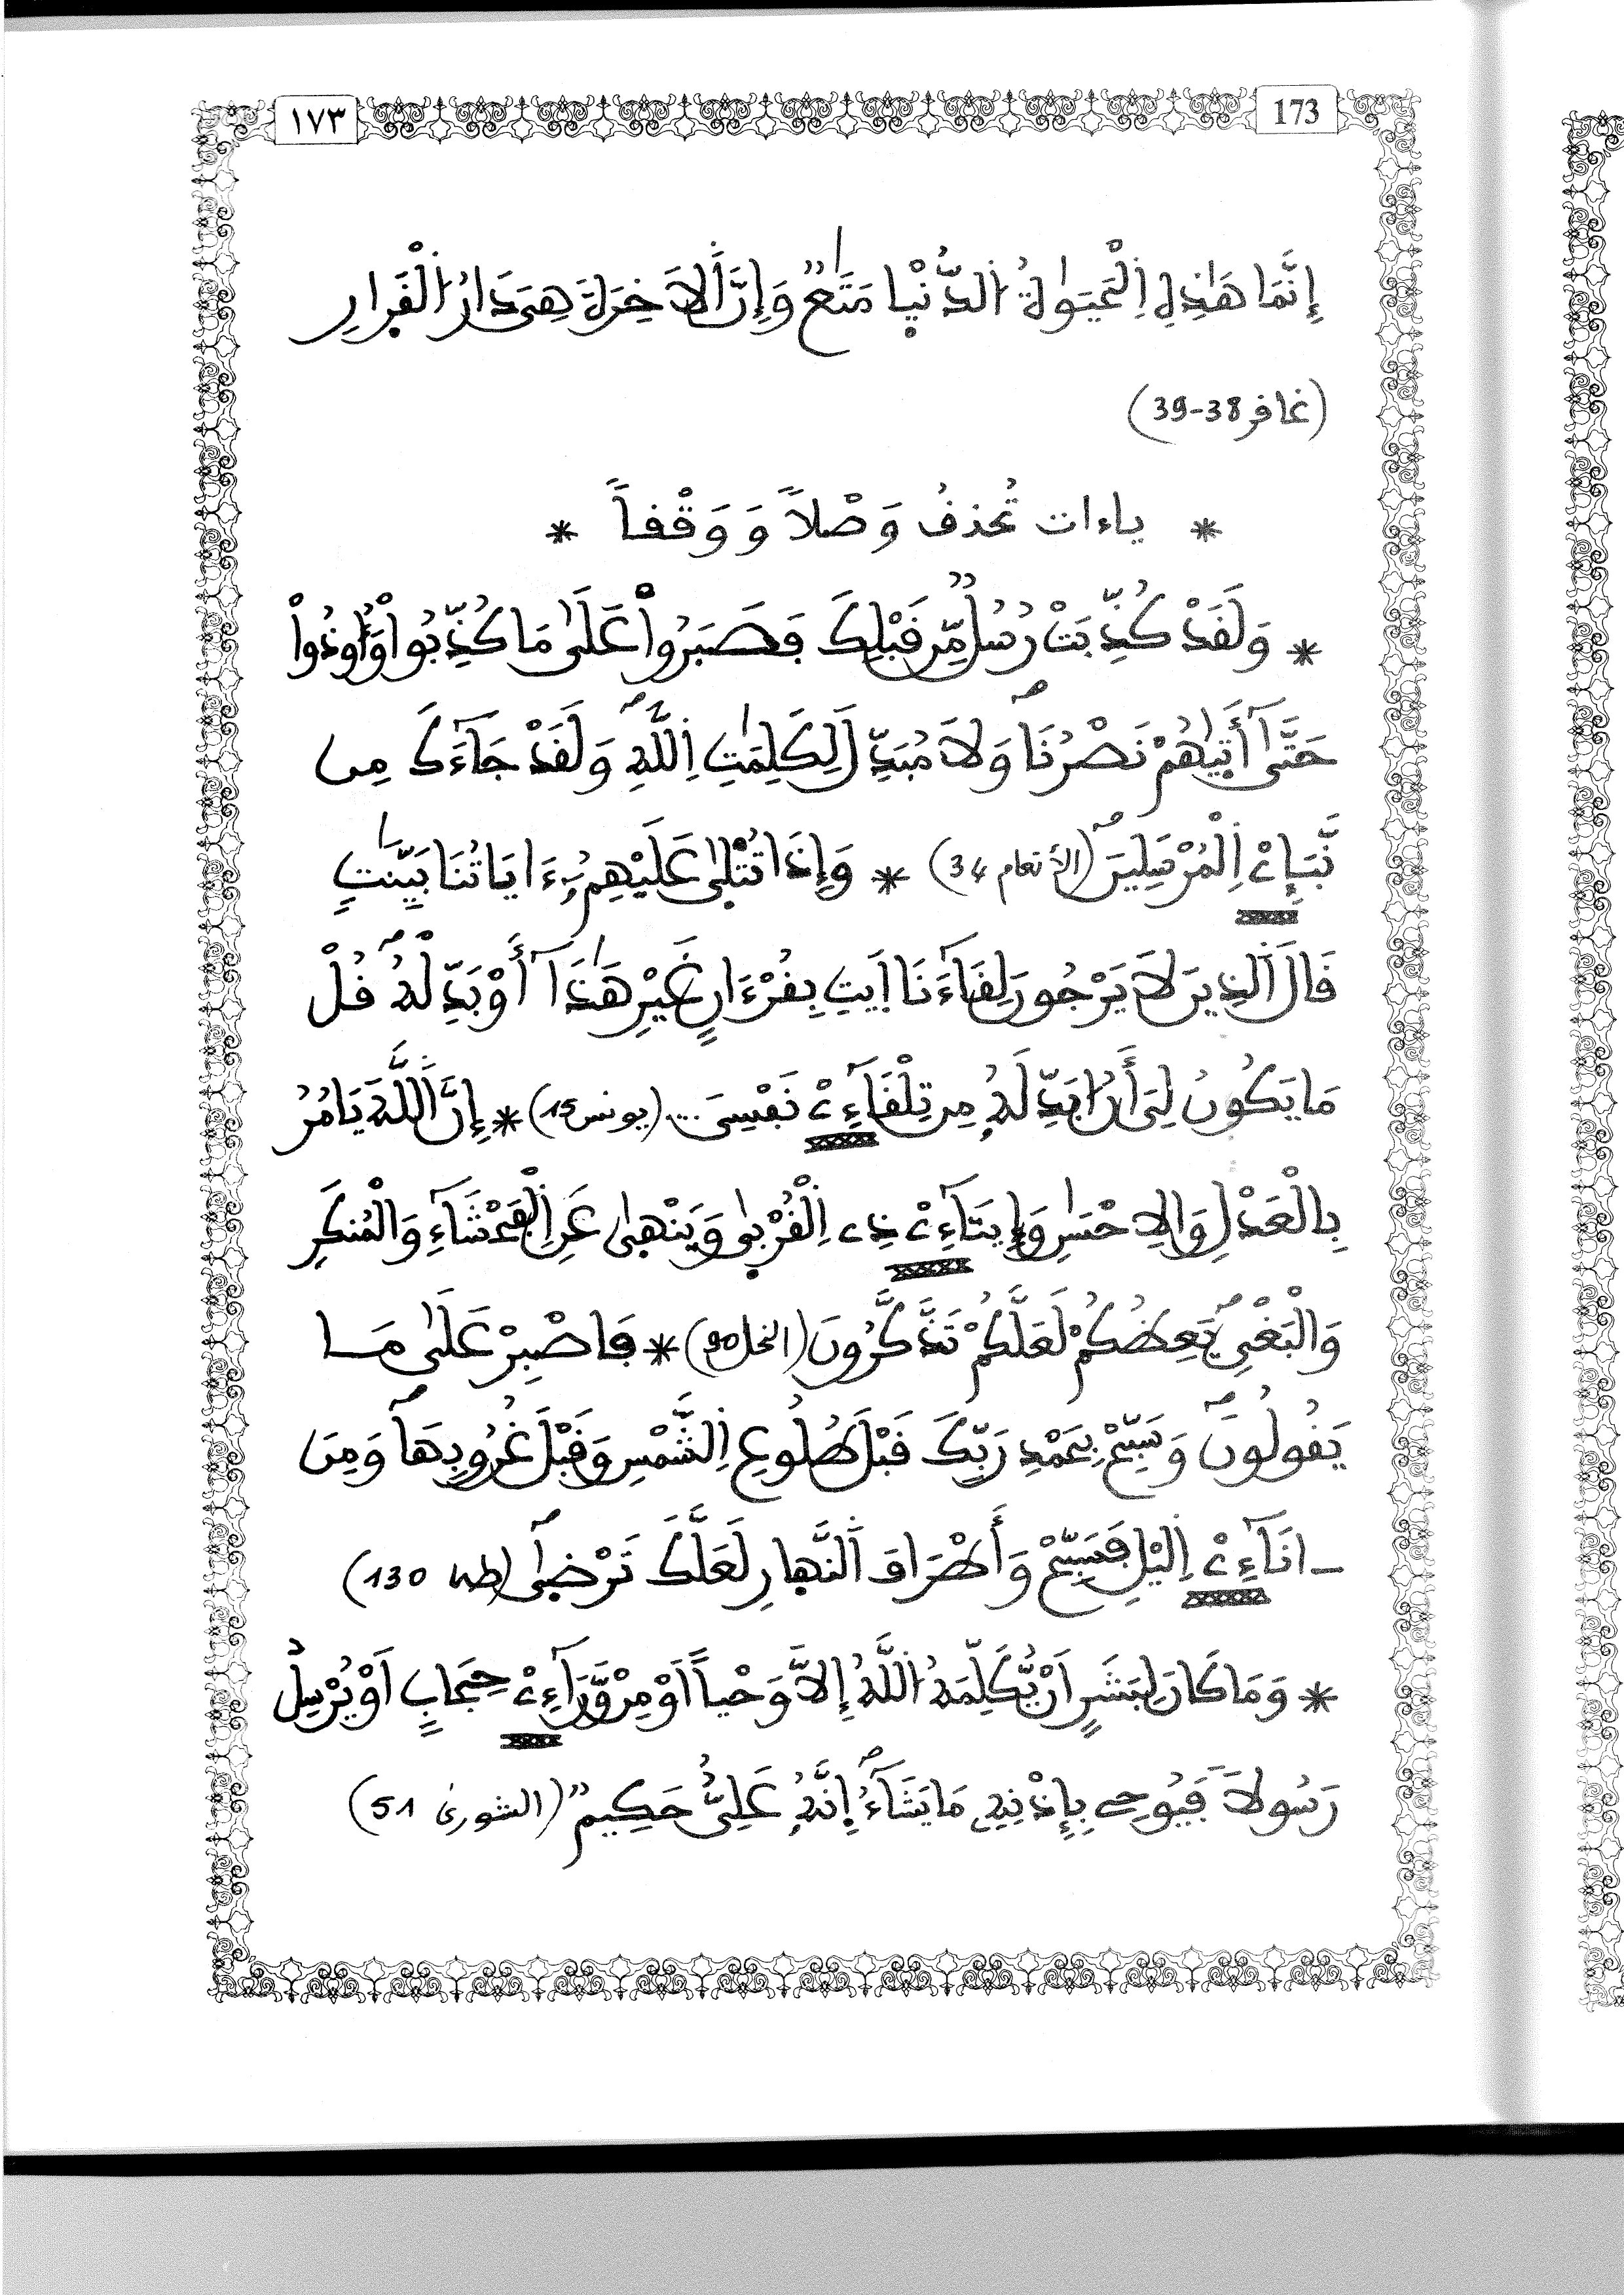 ١٧٣ 173
إِنَّمَا هَٰذِهِ اِ۬لْحَيَوٰةُ اُ۬لدُّنْيٜا مَتَٰعٌ وَإِنَّ اَ۬لَاخِرَةَ هِيَ دَارُ اُ۬لْقَرٜارِ
(غافر 38-39)
* ياءات تُحذفُ وَصْلاً وَوَقْفاً *
* وَلَقَدْ كُذِّبَتْ رُسُلٌ مِّن قَبْلِكَ فَصَبَرُواْ عَلَىٰ مَا كُذِّبُواْ وَأُوذُواْ
حَتَّىٰٓ أَتٜىٰهُمْ نَصْرُنَا وَلَا مُبَدِّلَ لِكَلِمَٰتِ اِ۬للَّهِ وَلَقَدْ جَآءَكَ مِن
نَّبَإِےْ اِ۬لْمُرْسَلِينَ (الأنعام 34) * وَإِذَا تُتْلٜىٰ عَلَيْهِمُۥٓ ءَايَاتُنَا بَيِّنَٰتٍ
قَالَ اَ۬لذِينَ لَا يَرْجُونَ لِقَآءَنَا اَ۪يتِ بِقُرْءَانٍ غَيْرِ هَٰذَآ أَوْ بَدِّلْهُ قُلْ
مَا يَكُونُ لِيَ أَنُ ا۟بَدِّلَهُۥ مِن تِلْقَآءِےْ نَفْسِيَ... (يونس 15) * إِنَّ اَ۬للَّهَ يَامُرُ
بِالْعَدْلِ وَالِاحْسَٰنِ وَإِيتَآءِےْ ذِے اِ۬لْقُرْبٜىٰ وَيَنْهٜىٰ عَنِ اِ۬لْفَحْشَآءِ وَالْمُنكَرِ
وَالْبَغْيِ يَعِظُكُمْ لَعَلَّكُمْ تَذَّكَّرُونَ (النحل 90) * فَاصْبِرْ عَلَىٰ مَا
يَقُولُونَ وَسَبِّحْ بِحَمْدِ رَبِّكَ قَبْلَ طُلُوعِ اِ۬لشَّمْسِ وَقَبْلَ غُرُوبِهَا وَمِنَ
ـ انَآءِےْ اِ۬ليْلِ فَسَبِّحْ وَأَطْرَافَ اَ۬لنَّهٜارِ لَعَلَّكَ تَرْضٜىٰ (طه 130)
* وَمَا كَانَ لِبَشَرٍ اَنْ يُّكَلِّمَهُ اُ۬للَّهُ إِلَّا وَحْياً اَوْ مِنْ وَّرَآءِےْ حِجَابٍ اَوْ يُرْسِلُ
رَسُولاً فَيُوحِے بِإِذْنِهِۦ مَا يَشَآءُ اِنَّهُۥ عَلِيٌّ حَكِيمٌ (الشورى 51)